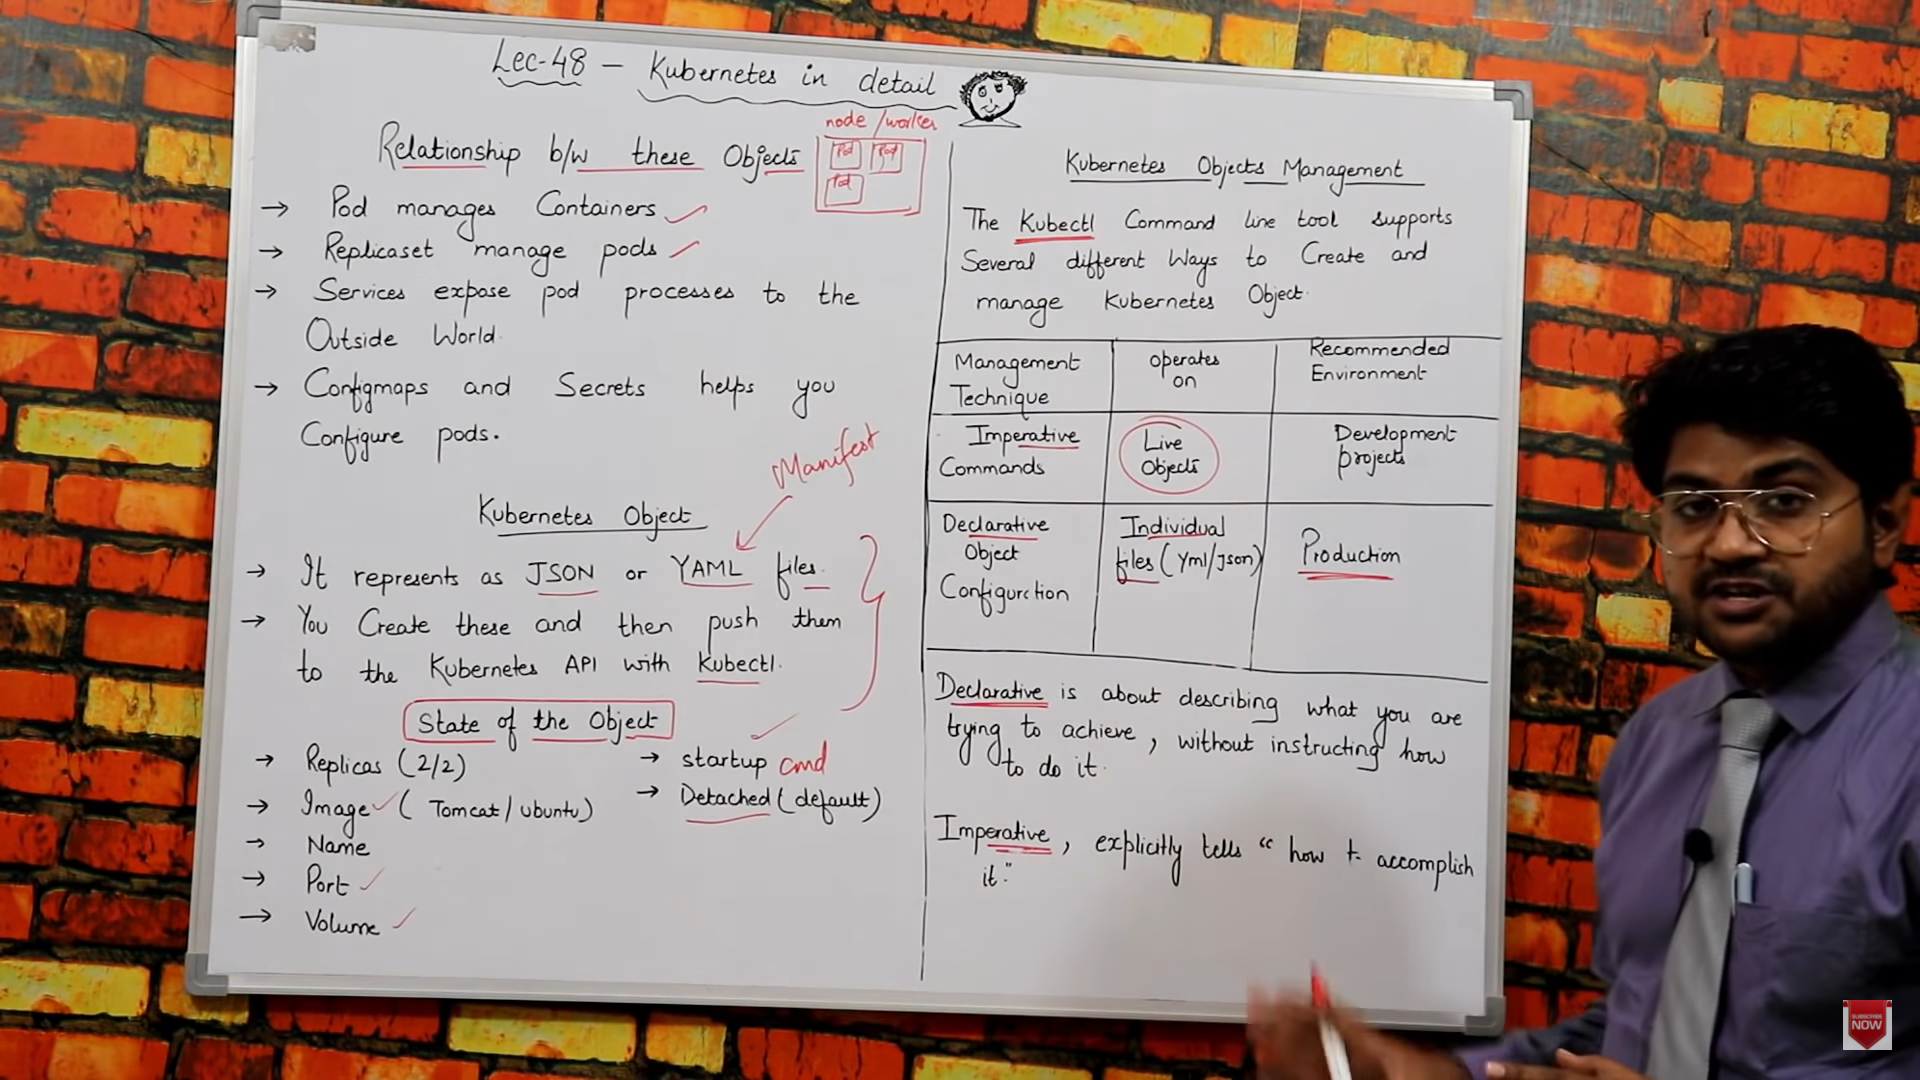 Lec-48 – Kubernetes in detail
Relationship b/w these Objects
node /worker
Pod Pod
Pod
→ Pod manages Containers
→ Replicaset manage pods
→ Services expose pod processes to the
Outside World.
→ Configmaps and Secrets helps you
Configure pods.
Manifest
Kubernetes Object
→ It represents as JSON or YAML files.
→ You Create these and then push them
to the Kubernetes API with Kubectl.
State of the Object
→ Replicas (2/2)
→ Image (Tomcat/ubuntu)
→ Name
→ Port
→ Volume
→ startup cmd
→ Detached (default)
Kubernetes Objects Management
The Kubectl Command line tool supports
Several different Ways to Create and
manage Kubernetes Object.
Management
Technique
operates
on
Recommended
Environment
Imperative
Commands
Live
Objects
Development
projects
Declarative
Object
Configurction
Individual
files (Yml/Json)
Production
Declarative is about describing what you are
trying to achieve, without instructing how
to do it.
Imperative, explicitly tells "how t- accomplish
it."
SUBSCRIBE
NOW